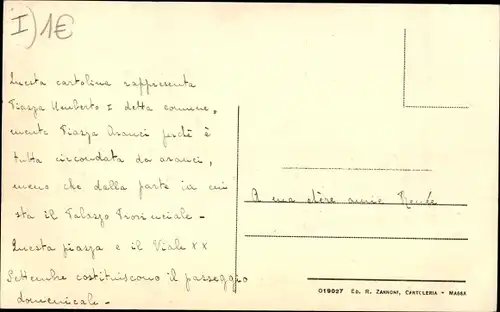 I) 1€
Questa cartolina rappresenta
Piazza Umberto I detta comune,
mente Piazza Aranci perchè è
tutta circondata da aranci,
meno che dalla parte in cui
sta il Palazzo Provinciale -
Questa piazza e il Viale XX
Settembre costituiscono il passeggio
domenicale -
A ma chère amie Renée
019027 ED. R. ZANNONI, CARTOLERIA - MASSA